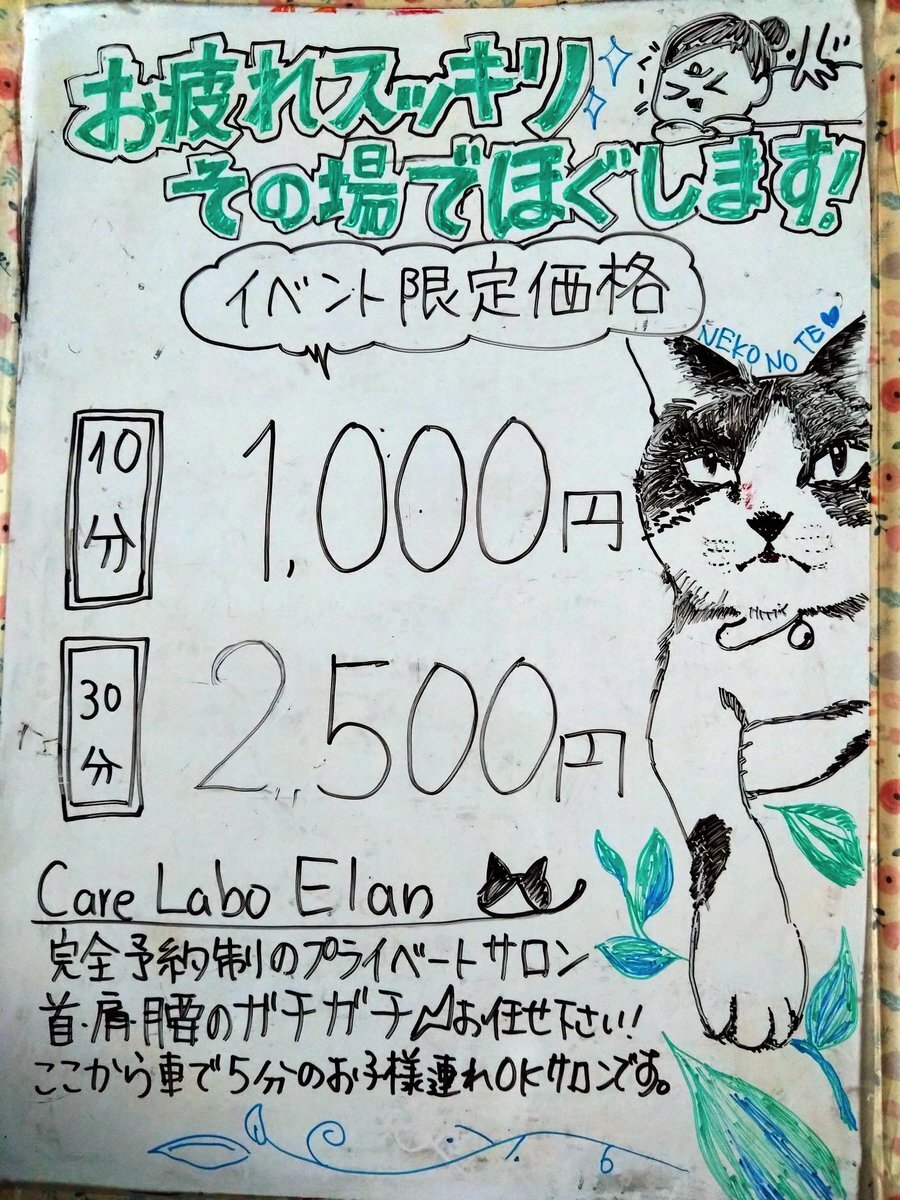 お疲れスッキリ
その場でほぐします!
イベント限定価格
NEKO NO TE
10分
1,000円
30分
2,500円
Care Labo Elan
完全予約制のプライベートサロン
首・肩・腰のガチガチお任せ下さい!
ここから車で5分のお子様連れOKサロンです。